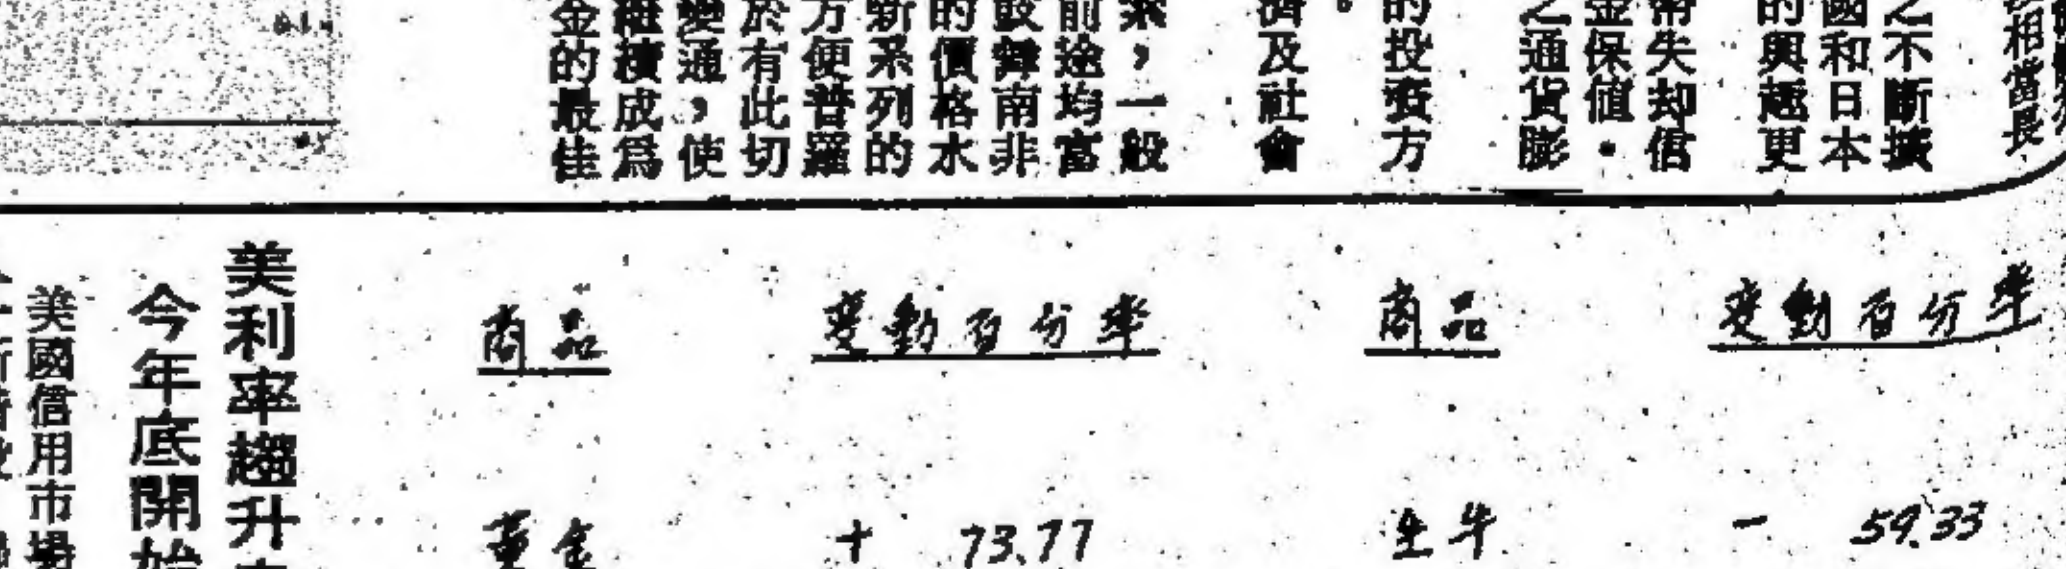 相當長
之不斷擴
國和日本
的興趣更
幣失却信
金保值・
之通貨膨
的投資方
。
濟及社會
，一般
前途均富
鼓舞南非
的價格水
新系列的
方便普羅
於有此切
變通，使
繼續成爲
金的最佳
商品 變動百分率 商品 變動百分率
黃金 + 73.77 生牛 - 59.33
美利率趨升
今年底開始
美國信用市場